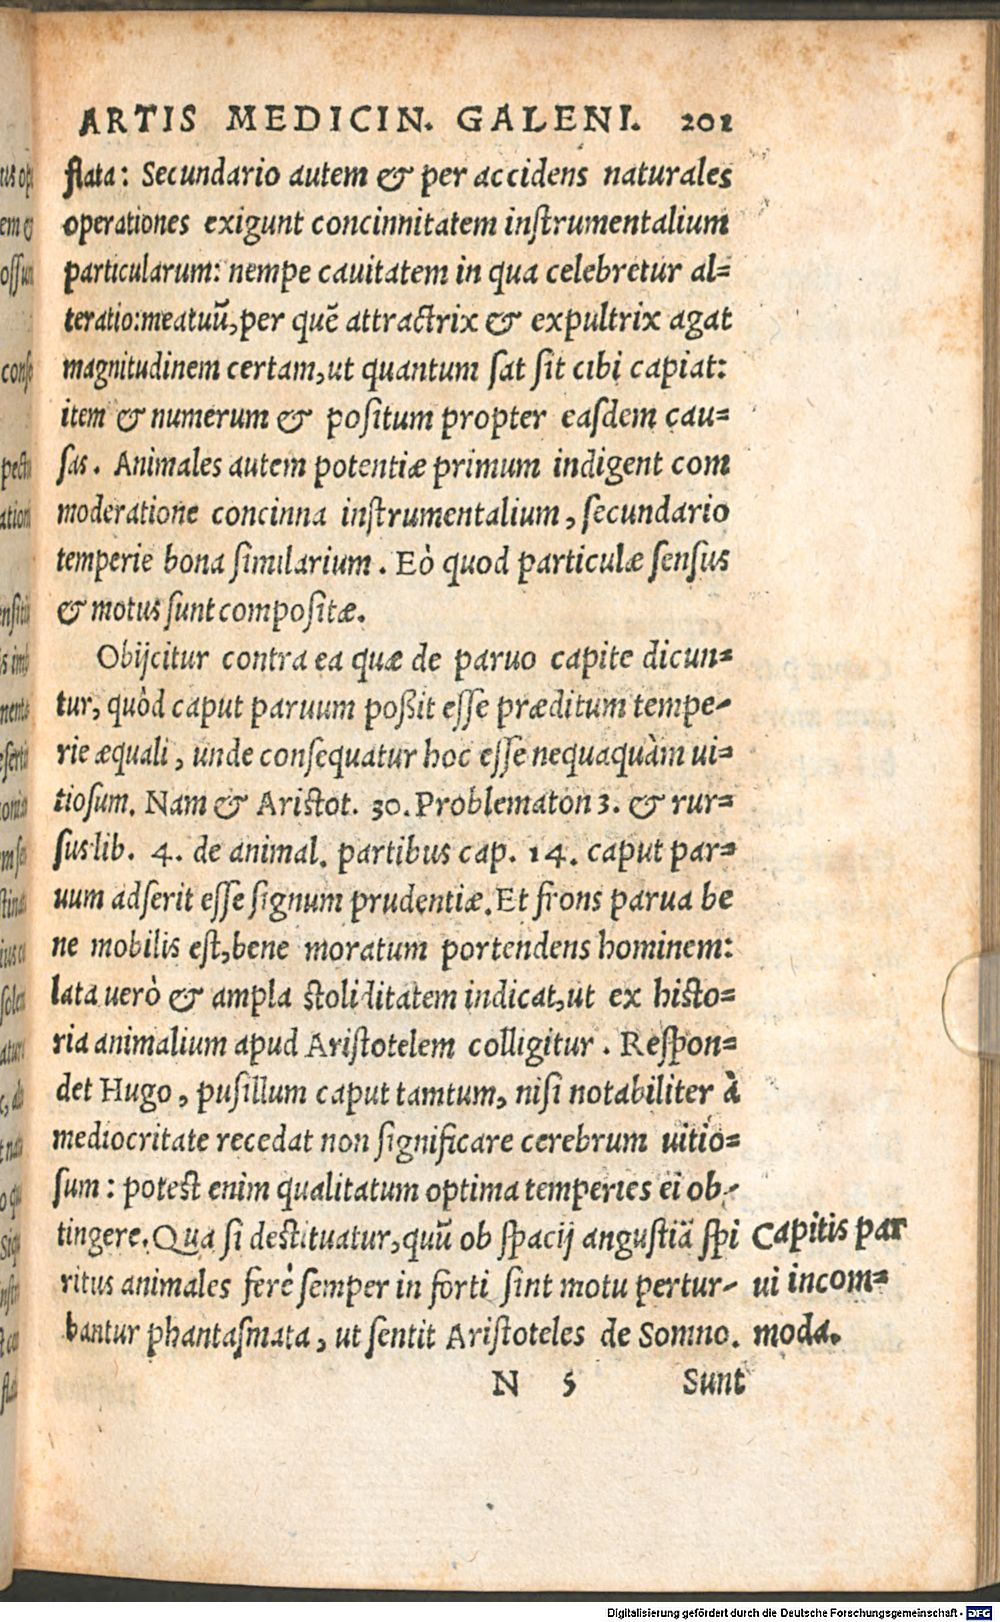 ARTIS MEDICIN. GALENI. 201
flata: Secundario autem & per accidens naturales
operationes exigunt concinnitatem inſtrumentalium
particularum: nempe cauitatem in qua celebretur al=
teratio:meatuũ,per quẽ attractrix & expultrix agat
magnitudinem certam,ut quantum ſat ſit cibi capiat:
item & numerum & poſitum propter eaſdem cau=
ſas. Animales autem potentiæ primum indigent com
moderatione concinna inſtrumentalium, ſecundario
temperie bona ſimilarium. Eò quod particulæ ſenſus
& motus ſunt compoſitæ.
Obijcitur contra ea quæ de paruo capite dicun=
tur, quòd caput paruum poßit eſſe præditum tempe-
rie æquali, unde conſequatur hoc eſſe nequaquàm ui=
tioſum. Nam & Ariſtot. 30. Problematon 3. & rur=
ſus lib. 4. de animal. partibus cap. 14. caput par=
uum adſerit eſſe ſignum prudentiæ. Et frons parua be
ne mobilis eſt,bene moratum portendens hominem:
lata uerò & ampla ſtoliditatem indicat,ut ex hiſto=
ria animalium apud Ariſtotelem colligitur. Reſpon=
det Hugo, puſillum caput tamtum, niſi notabiliter à
mediocritate recedat non ſignificare cerebrum uitio=
ſum: poteſt enim qualitatum optima temperies ei ob-
tingere. Qua ſi deſtituatur,quũ ob ſpacij anguſtiã ſpi
ritus animales ferè ſemper in forti ſint motu pertur-
bantur phantaſmata, ut ſentit Ariſtoteles de Somno.
Capitis par
ui incom=
moda.
N 5 Sunt
Digitalisierung gefördert durch die Deutsche Forschungsgemeinschaft - DFG